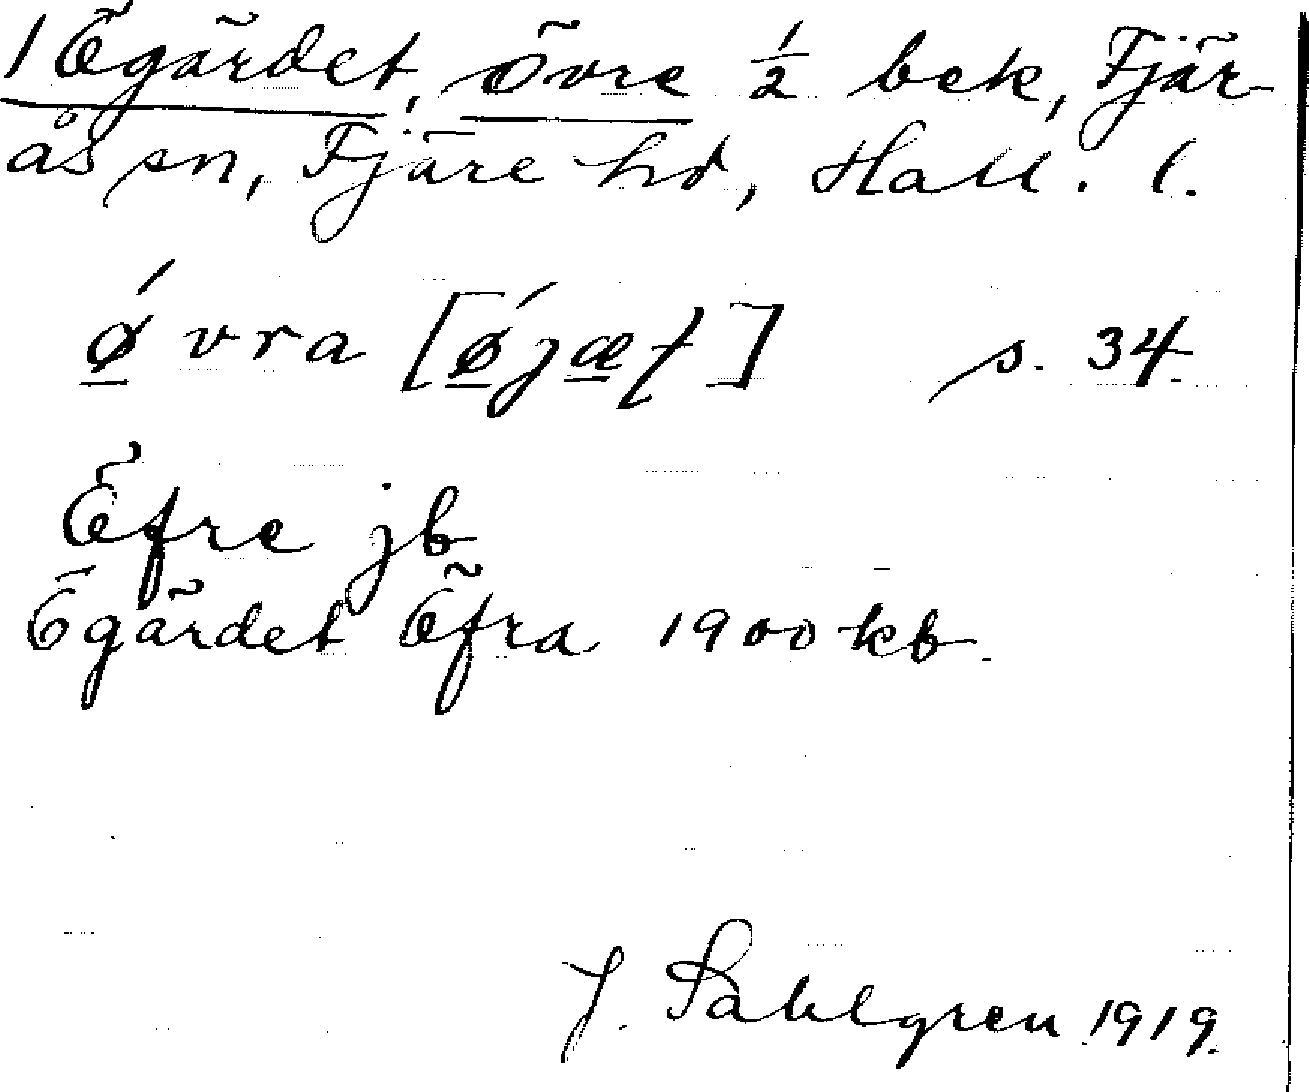 1 Ögärdet, övre 1/2 bek, Fjär-
ås sn, Fjäre hd, Hall. l.
ǿ vra [ǿjæɼ] s. 34.
Öfre jb
Ögärdet Öfra 1900 kb.
J. Sahlgren 1919.